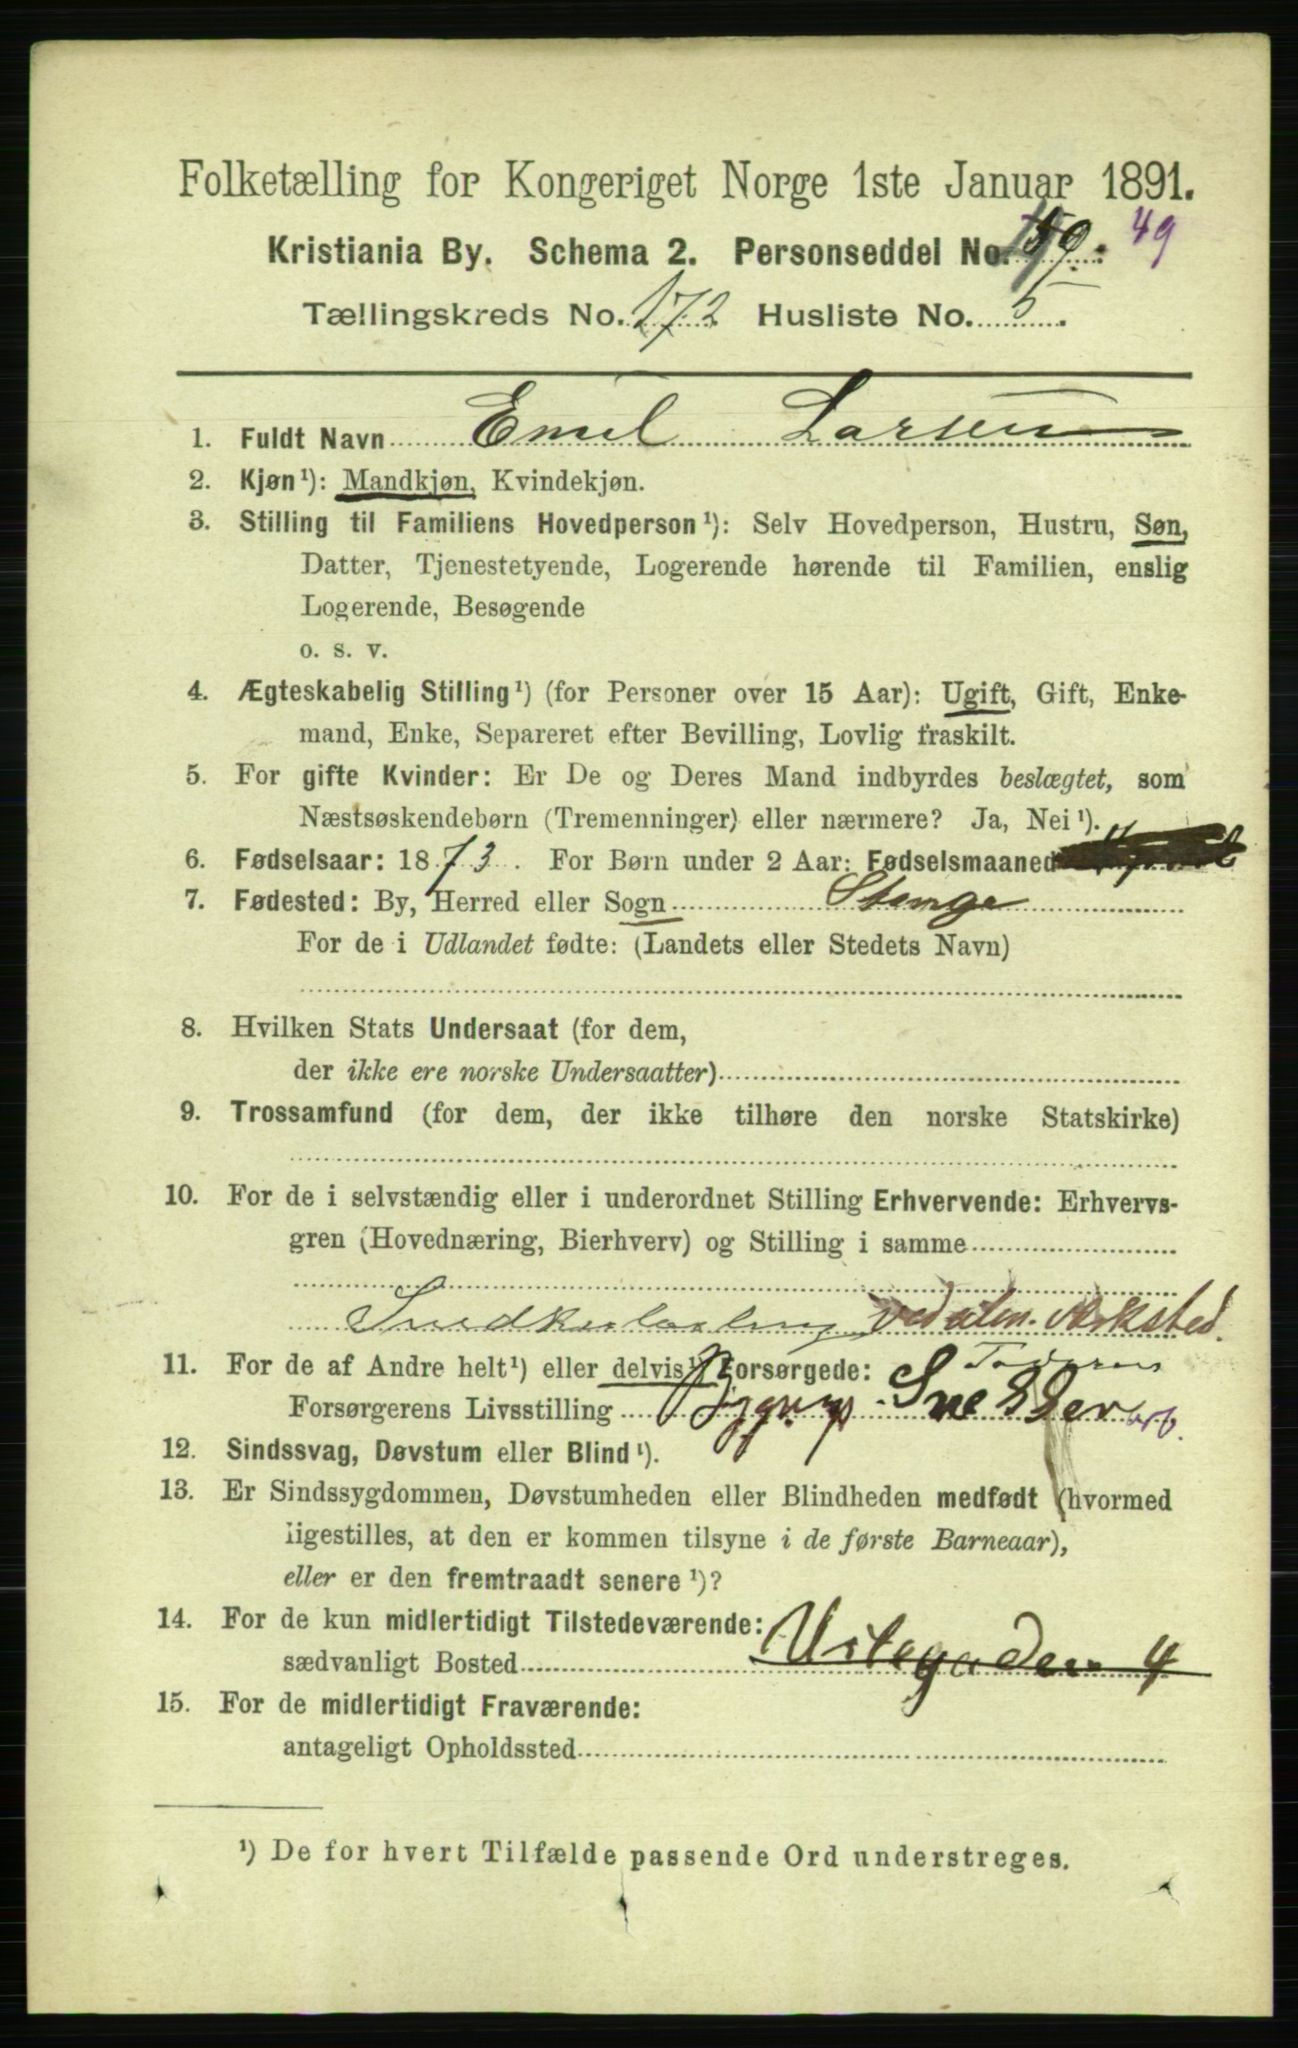 Folketælling for Kongeriget Norge 1ste Januar 1891.
Kristiania By. Schema 2. Personseddel No. 49
Tællingskreds No. 172 Husliste No. 5
1. Fuldt Navn Emil Larsen
2. Kjøn¹): Mandkjøn, Kvindekjøn.
3. Stilling til Familiens Hovedperson¹): Selv Hovedperson, Hustru, Søn,
Datter, Tjenestetyende, Logerende hørende til Familien, enslig
Logerende, Besøgende
o. s. v.
4. Ægteskabelig Stilling¹) (for Personer over 15 Aar): Ugift, Gift, Enke-
mand, Enke, Separeret efter Bevilling, Lovlig fraskilt.
5. For gifte Kvinder: Er De og Deres Mand indbyrdes beslægtet, som
Næstsøskendebørn (Tremenninger) eller nærmere? Ja, Nei¹).
6. Fødselsaar: 1873. For Børn under 2 Aar: Fødselsmaaned
7. Fødested: By, Herred eller Sogn Stange
For de i Udlandet fødte: (Landets eller Stedets Navn)
8. Hvilken Stats Undersaat (for dem,
der ikke ere norske Undersaatter)
9. Trossamfund (for dem, der ikke tilhøre den norske Statskirke)
10. For de i selvstændig eller i underordnet Stilling Erhvervende: Erhvervs-
gren (Hovednæring, Bierhverv) og Stilling i samme
Snedkerlærling ved Verksted.
11. For de af Andre helt¹) eller delvis¹) Forsørgede: Faderen
Forsørgerens Livsstilling Bygnings Snekker arb.
12. Sindssvag, Døvstum eller Blind¹).
13. Er Sindssygdommen, Døvstumheden eller Blindheden medfødt (hvormed
ligestilles, at den er kommen tilsyne i de første Barneaar),
eller er den fremtraadt senere¹)?
14. For de kun midlertidigt Tilstedeværende:
sædvanligt Bosted 4
15. For de midlertidigt Fraværende:
antageligt Opholdssted
¹) De for hvert Tilfælde passende Ord understreges.